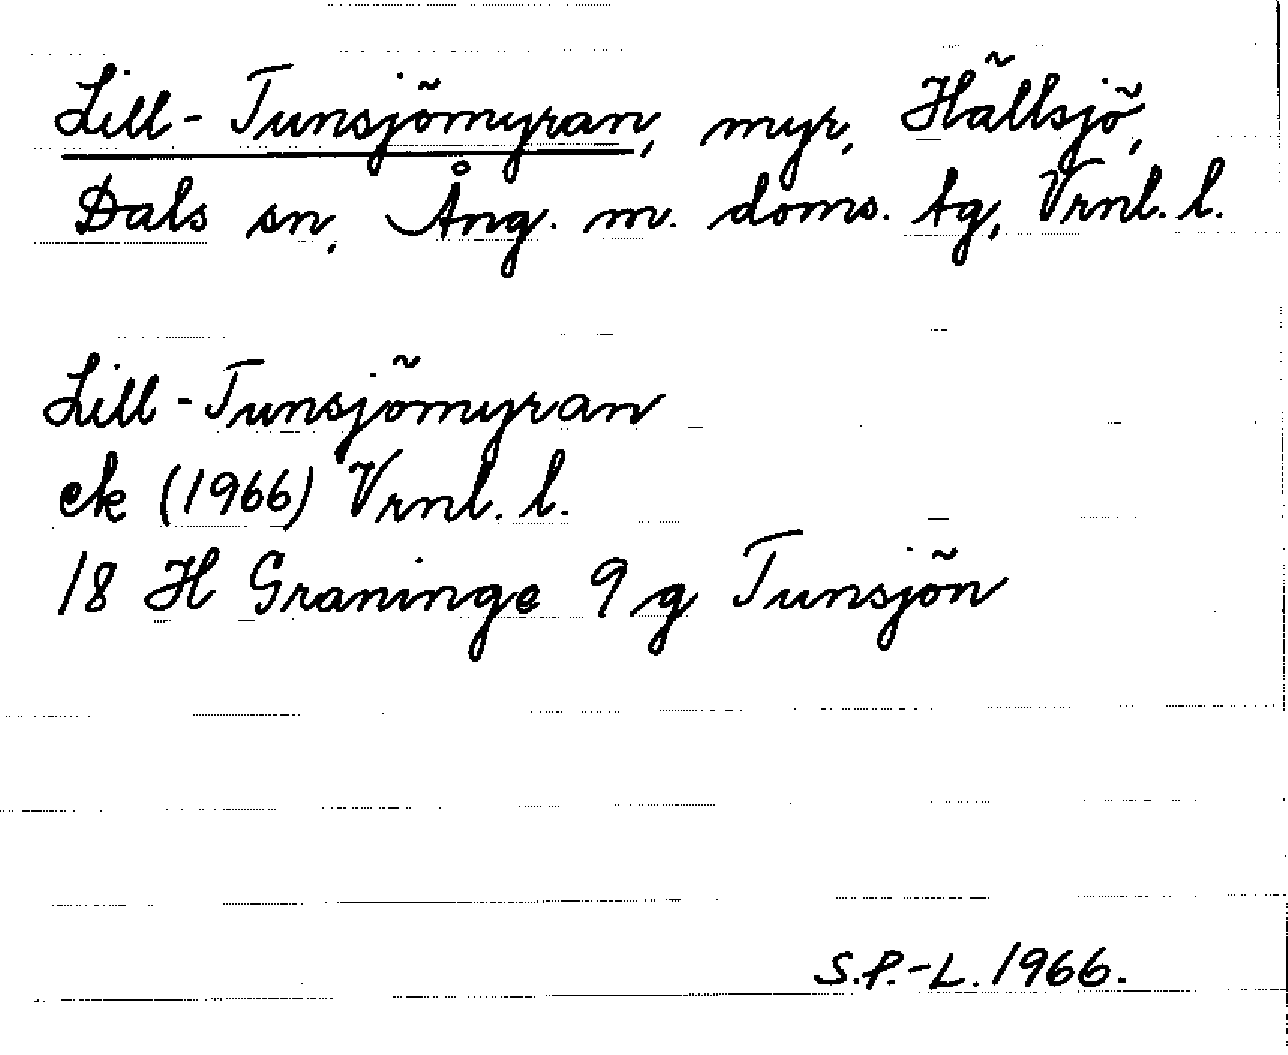 Lill-Tunsjömyran, myr, Hällsjö,
Dals sn, Ång. m. doms. tg, Vrnl. l.
Lill-Tunsjömyran
ek (1966) Vrnl. l.
18 H Graninge 9 g Tunsjön
S.P.-L. 1966.